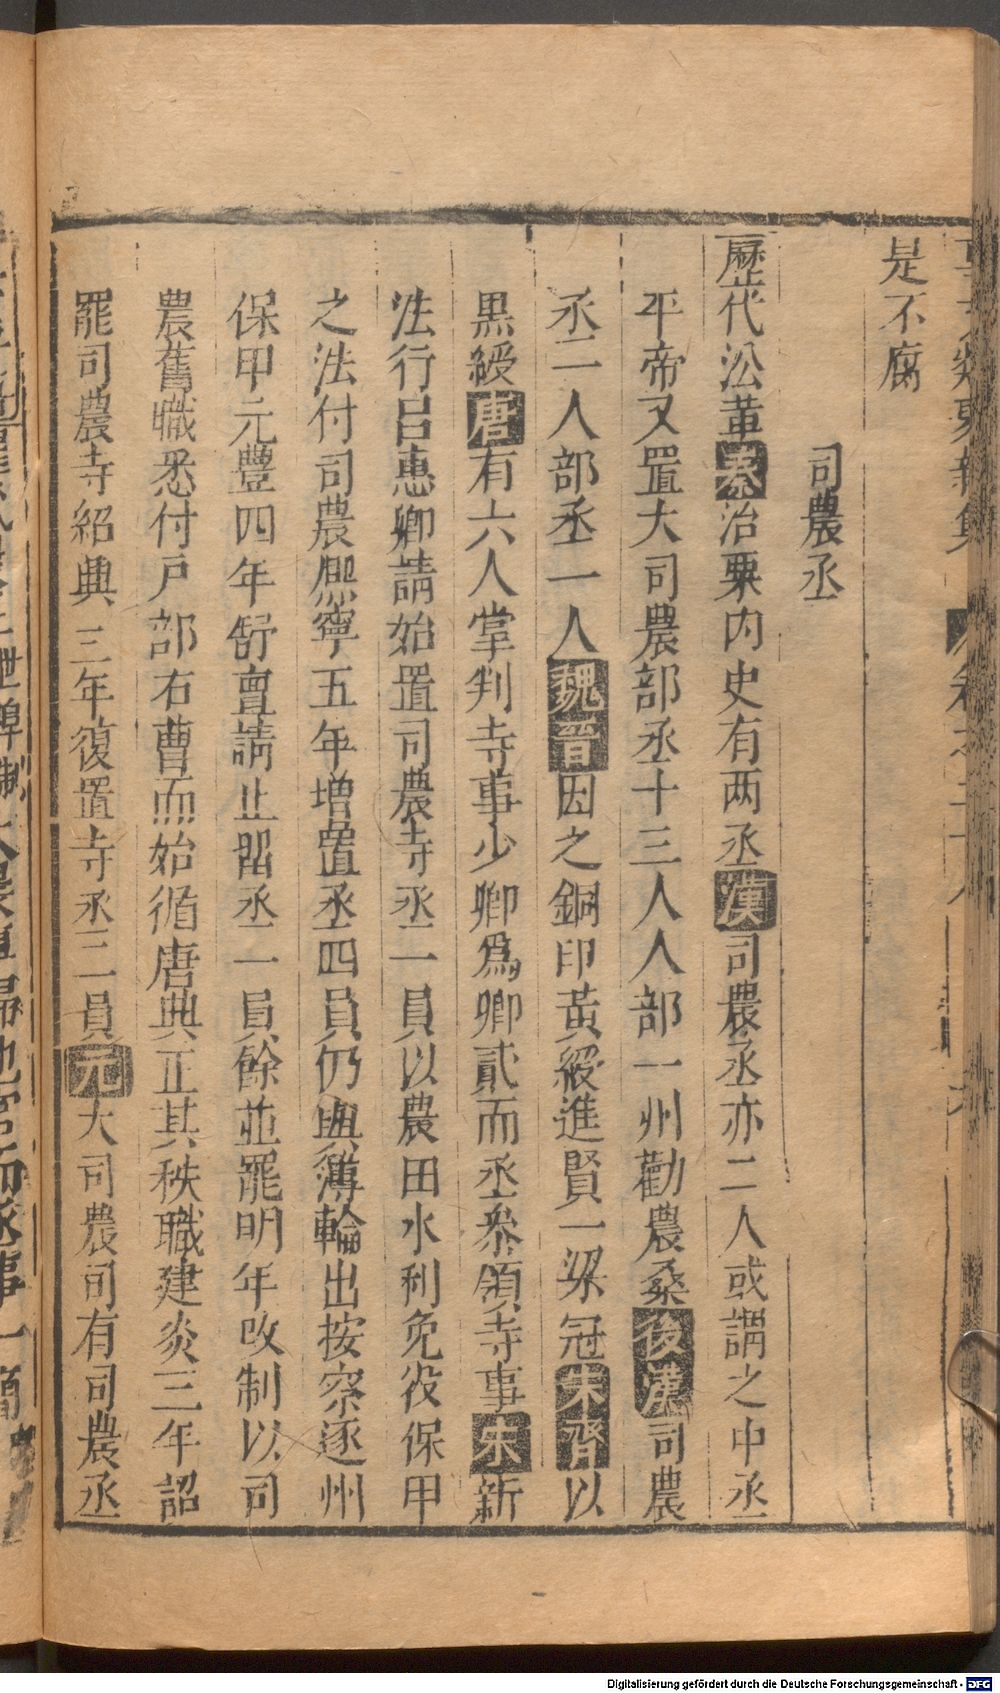 是不腐
司農丞
歷代㳂革秦治粟内史有两丞漢司農丞亦二人或謂之中丞
平帝又置大司農部丞十三人人部一州勸農桑後漢司農
丞二人部丞一人魏晉因之銅印黃綬進賢一梁冠宋齊以
黑綬唐有六人掌判寺事少卿爲卿貳而丞叅領寺事宋新
法行吕惠卿請始置司農寺丞一員以農田水利免役保甲
之法付司農熈寧五年增置丞四員仍與簿輪出按察逐州
保甲元豐四年舒亶請止留丞一員餘並罷明年改制以司
農舊職悉付戶部右曹而始循唐典正其秩職建炎三年詔
罷司農寺紹興三年復置寺丞二員元大司農司有司農丞
Digitalisierung gefördert durch die Deutsche Forschungsgemeinschaft - DFG